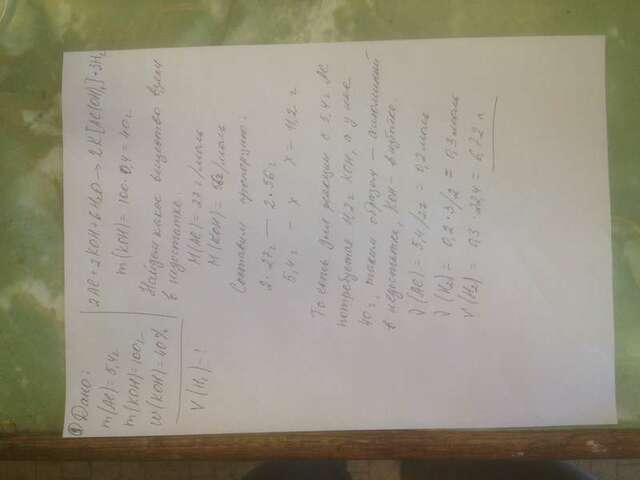 ① Дано:
m(Al)=5,4г
m(KOH)=100г
W(KOH)=40%
V(H₂)=?
2Al+2KOH+6H₂O→2K[Al(OH)₄]+3H₂
m(KOH)=100·0,4=40г
Найдем какое вещество взят
в недостатке.
M(Al)=27г/моль
M(KOH)=56г/моль
Составим пропорцию:
2·27г — 2·56г
5,4г — x x = 11,2 г
То есть для реакции с 5,4г Al
потребуется 11,2г KOH, а у нас
40г, таким образом — алюминий
в недостатке, KOH — в избытке.
ν(Al) = 5,4/27 = 0,2моль
ν(H₂) = 0,2·3/2 = 0,3моль
V(H₂) = 0,3·22,4 = 6,72 л